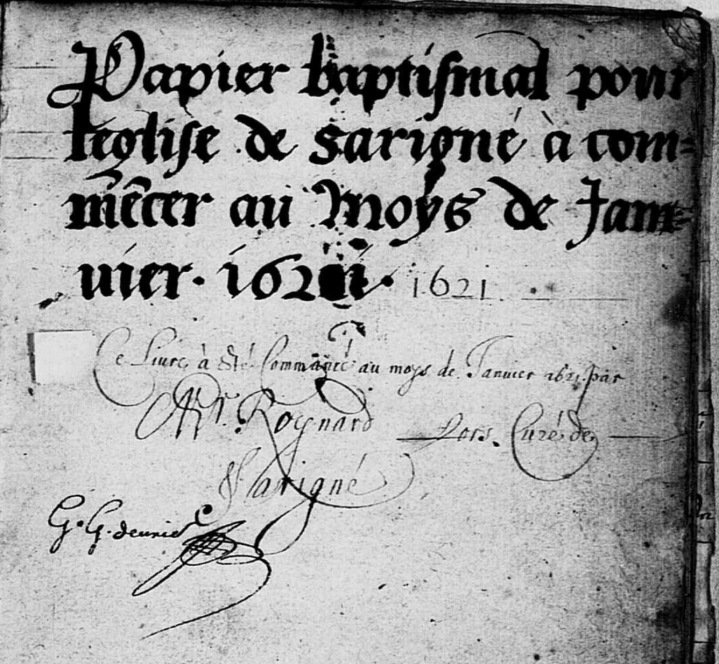 Papier baptismal pour
leglise de sarigné à com=
mēcer au Moys de Jan=
uier. 1621. 1621
Ce Liure à Esté Commancé au moys de Januier 1621. par
Mr. Rognard Lors Curé de
Sarigné
G. G.